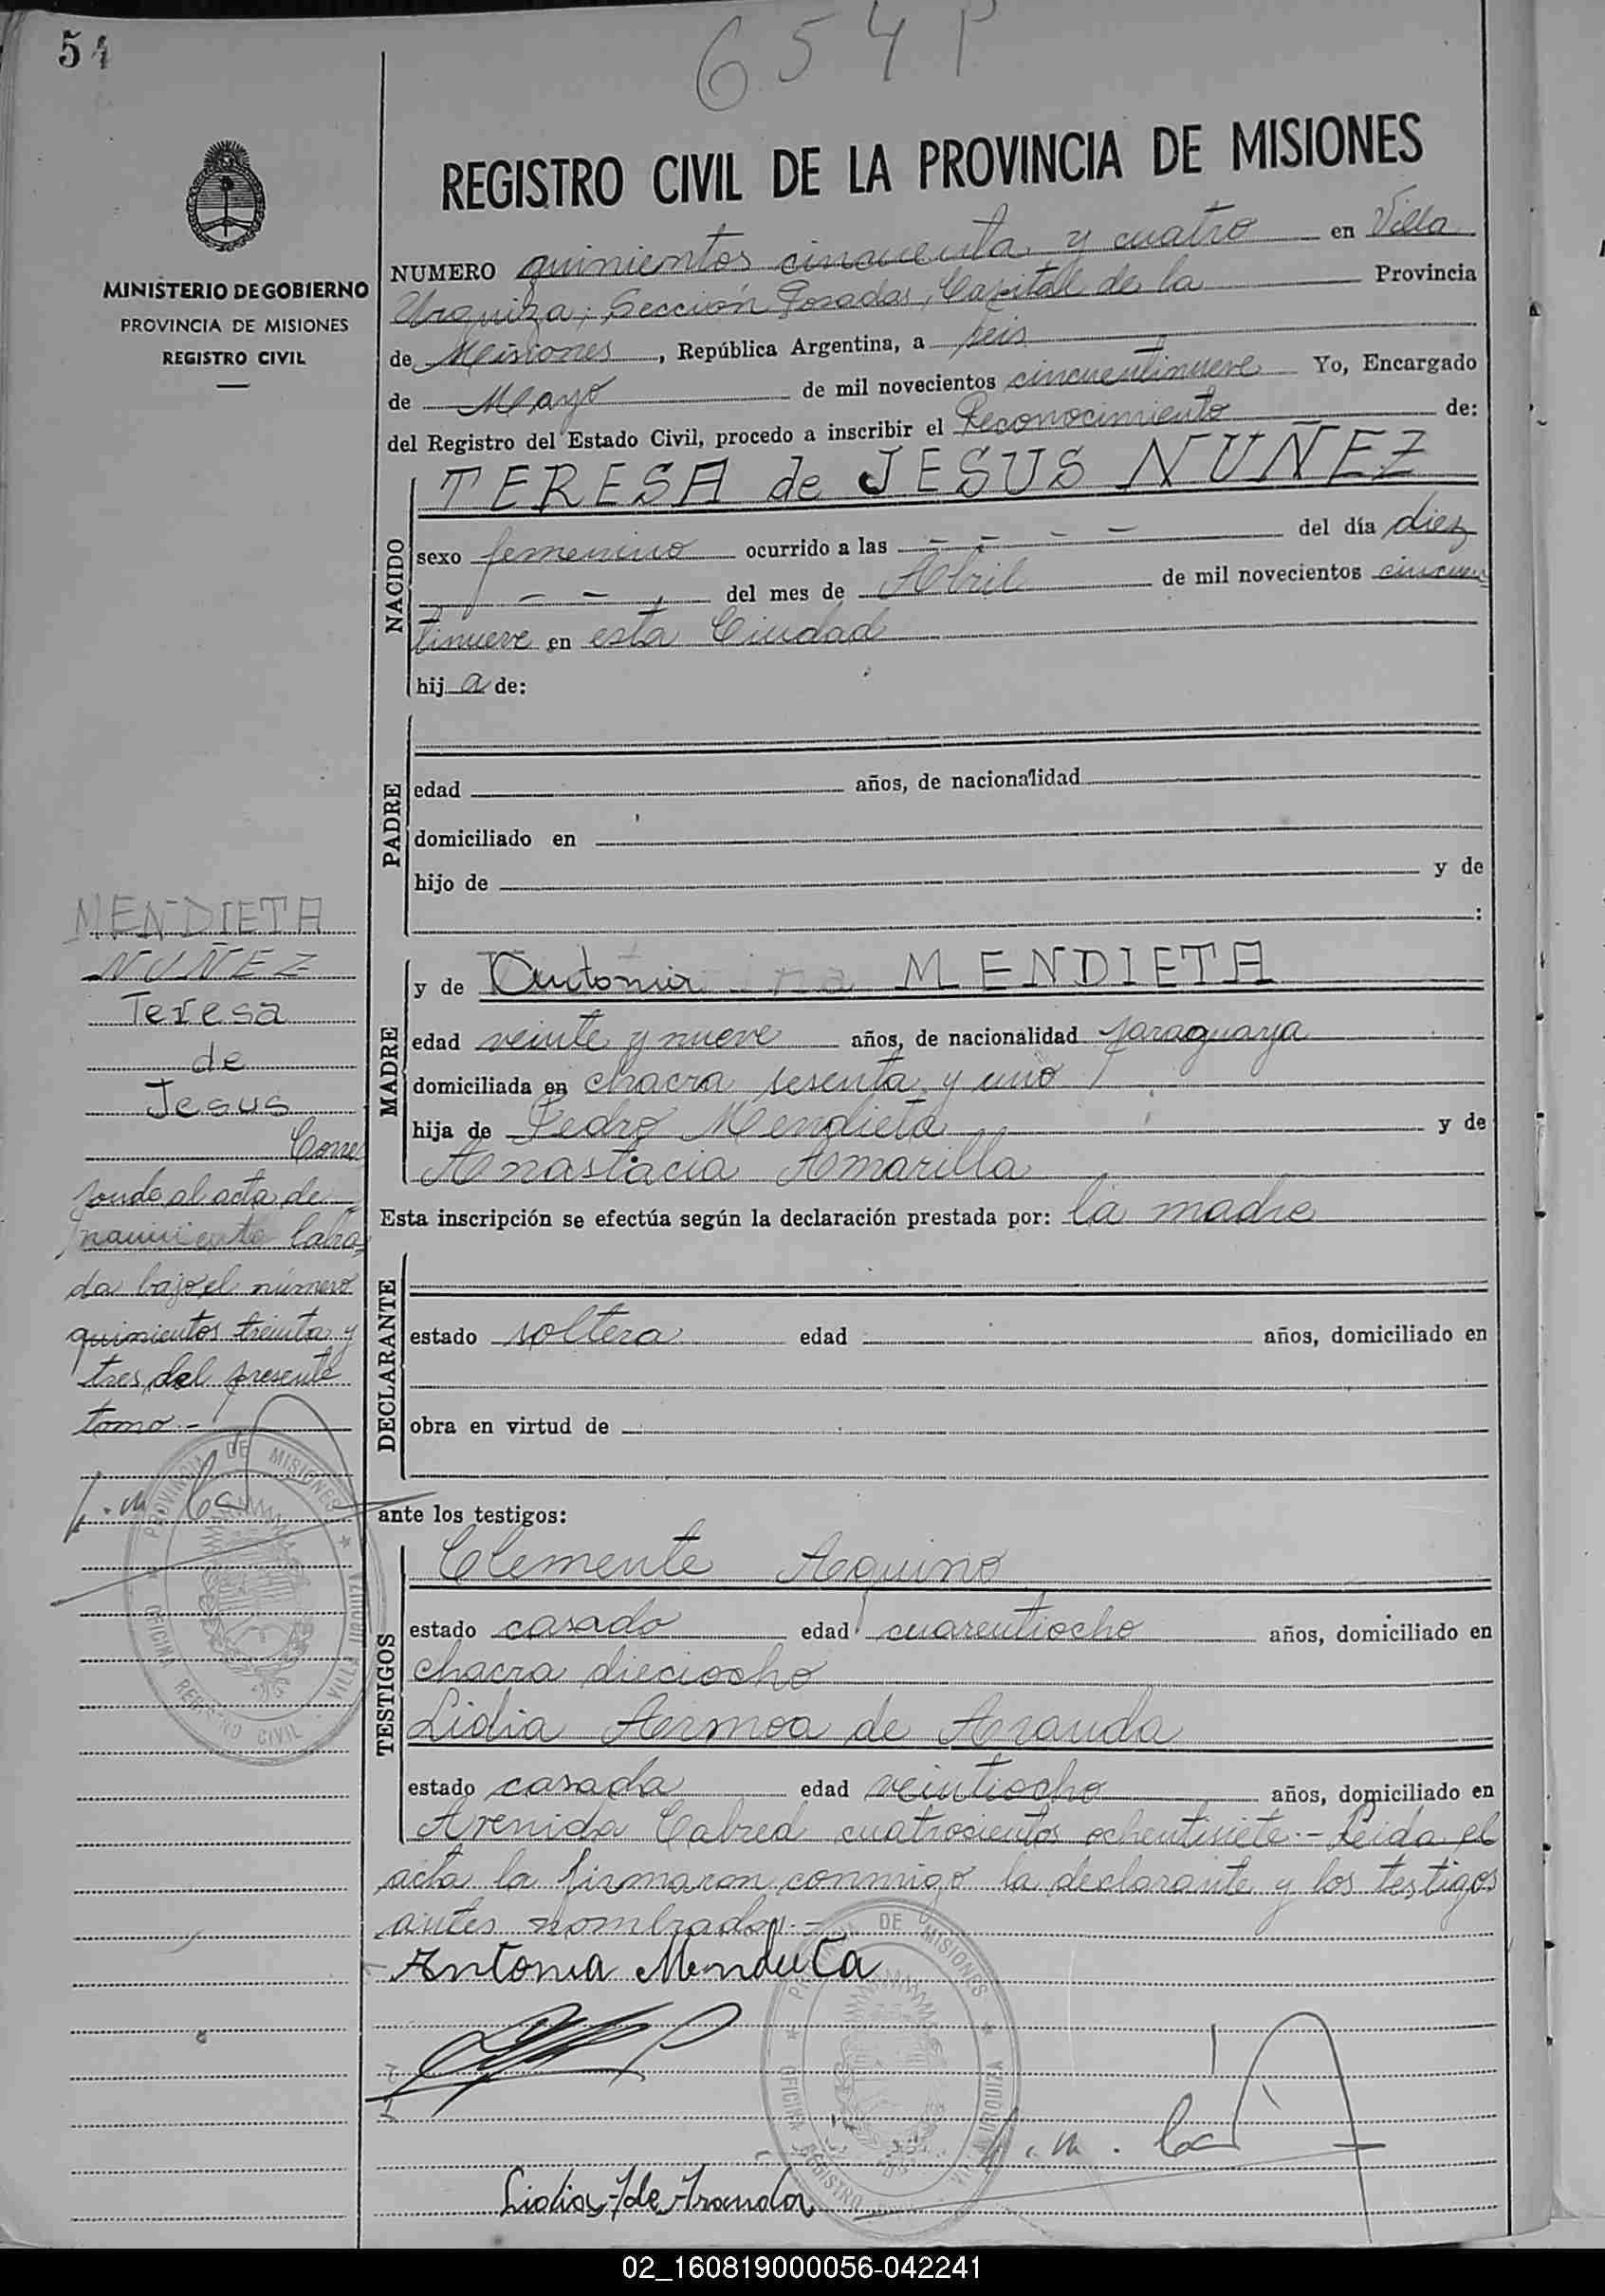 54
654 P
MINISTERIO DE GOBIERNO
PROVINCIA DE MISIONES
REGISTRO CIVIL
REGISTRO CIVIL DE LA PROVINCIA DE MISIONES
NUMERO quinientos cincuenta y cuatro en Villa
Urquiza, Sección Posadas, Capital de la Provincia
de Misiones, República Argentina, a seis
de Mayo de mil novecientos cincuentinueve Yo, Encargado
del Registro del Estado Civil, procedo a inscribir el Reconocimiento de:
NACIDO
TERESA de JESUS NUÑEZ
sexo femenino ocurrido a las - - - - del día diez
- - - del mes de Abril de mil novecientos cincuen
tinueve en esta Ciudad
hij a de:
PADRE
edad años, de nacionalidad
domiciliado en
hijo de y de
:
MADRE
y de Antonia MENDIETA
edad veinte y nueve años, de nacionalidad paraguaya
domiciliada en chacra sesenta y uno
hija de Pedro Mendieta y de
Anastacia Amarilla
Esta inscripción se efectúa según la declaración prestada por: la madre
DECLARANTE
estado soltera edad años, domiciliado en
obra en virtud de
ante los testigos:
TESTIGOS
Clemente Aquino
estado casado edad cuarentiocho años, domiciliado en
chacra dieciocho
Lidia Armoa de Aranda
estado casada edad veintiocho años, domiciliado en
Avenida Cabred cuatrocientos ochentisiete.- Leida el
acta la firmaron conmigo la declarante y los testigos
antes nombrados.-
Antonia Mendieta
Lidia A de Aranda
MENDIETA
NUÑEZ
Teresa
de
Jesus
Corres
ponde al acta de
nacimiento labra
da bajo el número
quinientos treinta y
tres del presente
tomo.-
PROVINCIA DE MISIONES
OFICINA REGISTRO CIVIL - VILLA URQUIZA
PROVINCIA DE MISIONES
OFICINA REGISTRO URQUIZA
02_160819000056-042241